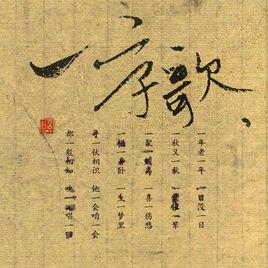 一字歌
一年老一年 一日没一日
一秋又一秋 一辈催一辈
一聚一离别 一喜一伤悲
一榻一身卧 一生一梦里
寻一伙相识 他一会咱一会
都一般相知 吹一回唱一回